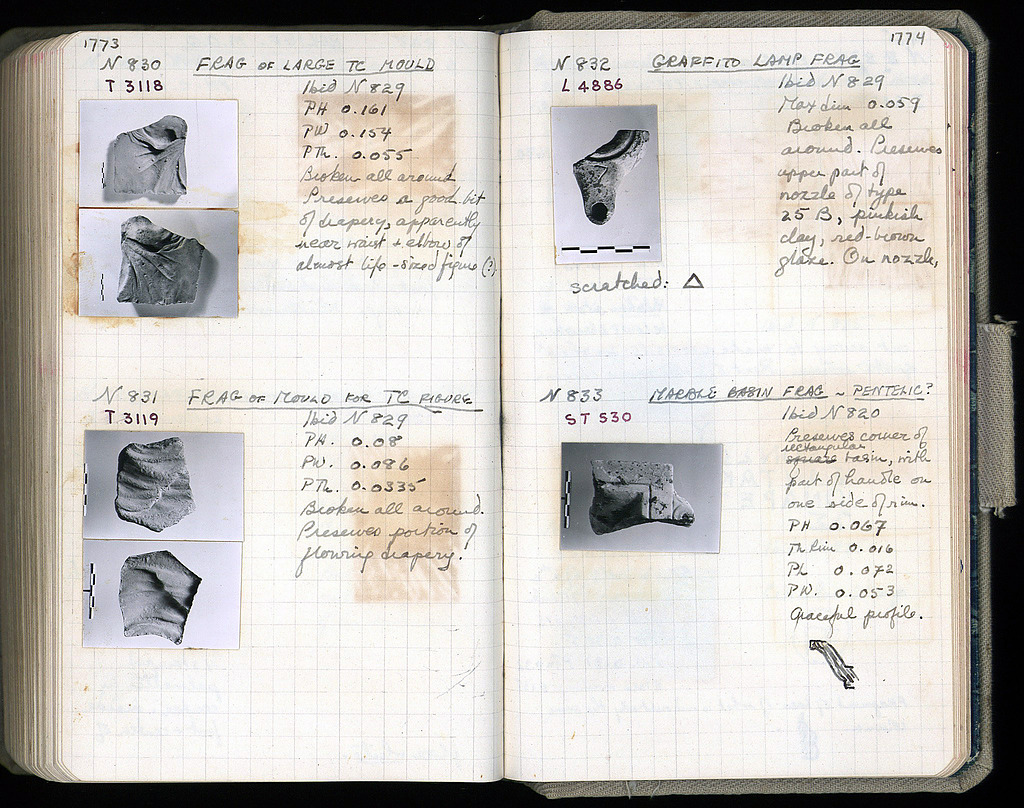 1773
N 830 FRAG OF LARGE TC MOULD
T 3118 Ibid N 829
PH 0.161
PW 0.154
PTh. 0.055
Broken all around
Preserves a good bit
of drapery, apparently
near waist + elbow of
almost life-sized figure (?)
N 831 FRAG OF MOULD FOR TC FIGURE
T 3119 Ibid N 829
PH. 0.08
PW. 0.086
PTh. 0.0335
Broken all around.
Preserves portion of
flowing drapery.
1774
N 832 GRAFFITO LAMP FRAG
L 4886 Ibid N 829
Max dim 0.059
Broken all
around. Preserves
upper part of
nozzle of type
25 B; pinkish
clay, red-brown
glaze. On nozzle,
scratched: Δ
N 833 MARBLE BASIN FRAG ~ PENTELIC?
ST 530 Ibid N 820
Preserves corner of
rectangular
square basin, with
part of handle on
one side of rim.
PH 0.067
Th rim 0.016
PL 0.072
PW. 0.053
Graceful profile.